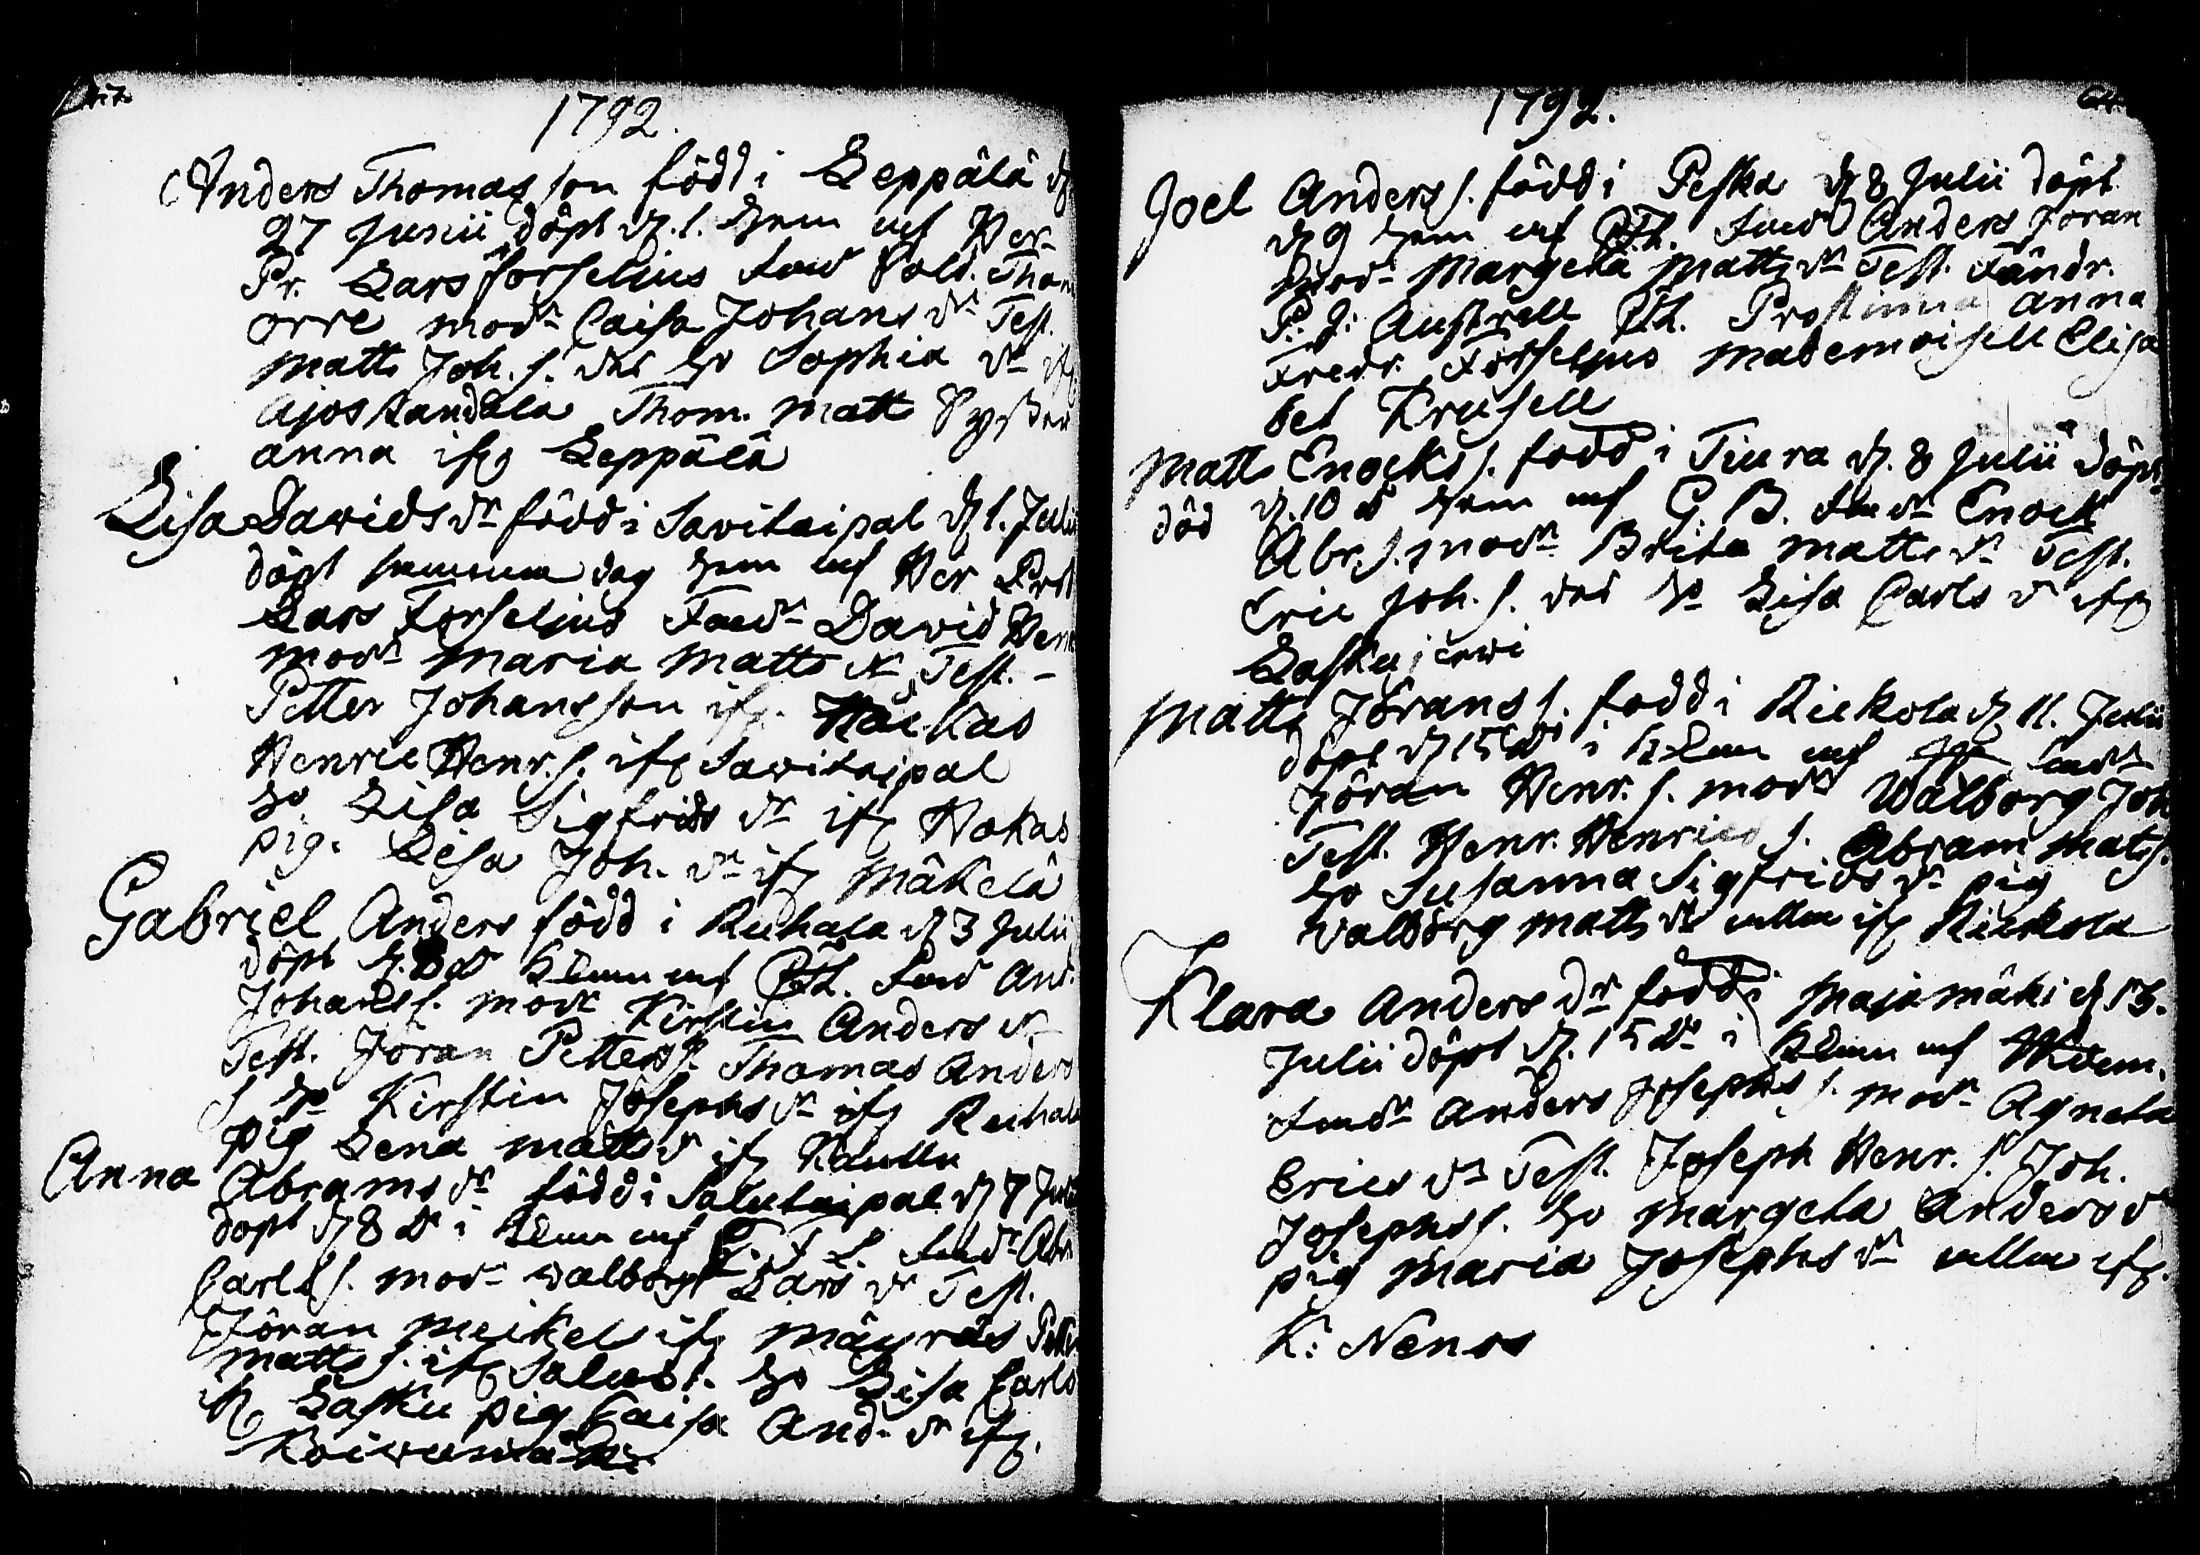 1792.
Anders Thomas son född i Leppälä d
27 Junii döpt d. 1. hem af Her
Pr. Lars Forselius Fad Sold. Thom
Orre mod:r Caisa Johans dr Test.
Matts Joh. s. des h:o Sophia dr
Ajostandala Thom. Matt
Anna ifr. Leppälä
Lisa Davids dr född i Savitaipal d 1. Julii
döpt samma dag hem af Her Prost
Lars Forselius Fad:r David Henr
mod:r Maria Matts dr Test. -
Petter Johansson ifr. Nackas
Henric Henr. s. ifr Savitaipal
ho Lisa Sigfrids dr ifr Nokas
pig. Lisa Joh. dr ifr Mäkelä
Gabriel Anders född i Ruhala d 3 Julii
döpt d. 8 do af PH. Fad And.
Johans s. mod:r Kirstin Anders dr
Test. Jöran Petters s. Thomas Anders
s ho Kirstin Josephs dr ifr Ruhala
pig Lena Matts d ifr
Anna Abrams dr född i Salutaipal d 7 Julii
döpt d 8 do i af Fad:r Abr
Carls s. mod:r Walborg Lars dr Test.
Jöran Meikel ifr Mäyräs Petter
Matts s. ifr ho Lisa Carls
dr Lasku pig Caisa And. dr ifr.
1792.
Joel Anders s. född i Peska d 8 Julii döpt
d 9 hem af PH. Fad:r Anders Joran
Mod:r Margeta Matts dr Test. Fändr.
P: J: Austrell PH. Prostinna Anna
Fredr. Forselius Mademoisell Elisa
bet Krusell
Matts Enocks s. född i Tiura d. 8 Julii döpt
död d. 10 do hem af G. B. Fad:r Enock
Abr. s. mod:r Brita Matts dr Test.
Eric Joh. s. des ho Lisa Carls d ifr
Laskujerwi
Matts Jörans s. född i Rickola d. 11. Julii
döpt d 15 do i af Fad:r
Jöran Henr. s. mod:r Walborg Joh
Test. Henr. Henrics s. Abram Mats s.
ho Susanna Sigfrids dr pig
Walborg Matts dr alla ifr Rickola
Klara Anders dr född i Majamäki d 13.
Julii döpt d. 15 do i af
Fad:r Anders Josephs s. mod:r Agneta
Erics dr Test. Joseph Henr. s. Joh.
Josephs s. ho Margeta Anders dr
pig Maria Josephs dr alla ifr.
K: Nenos